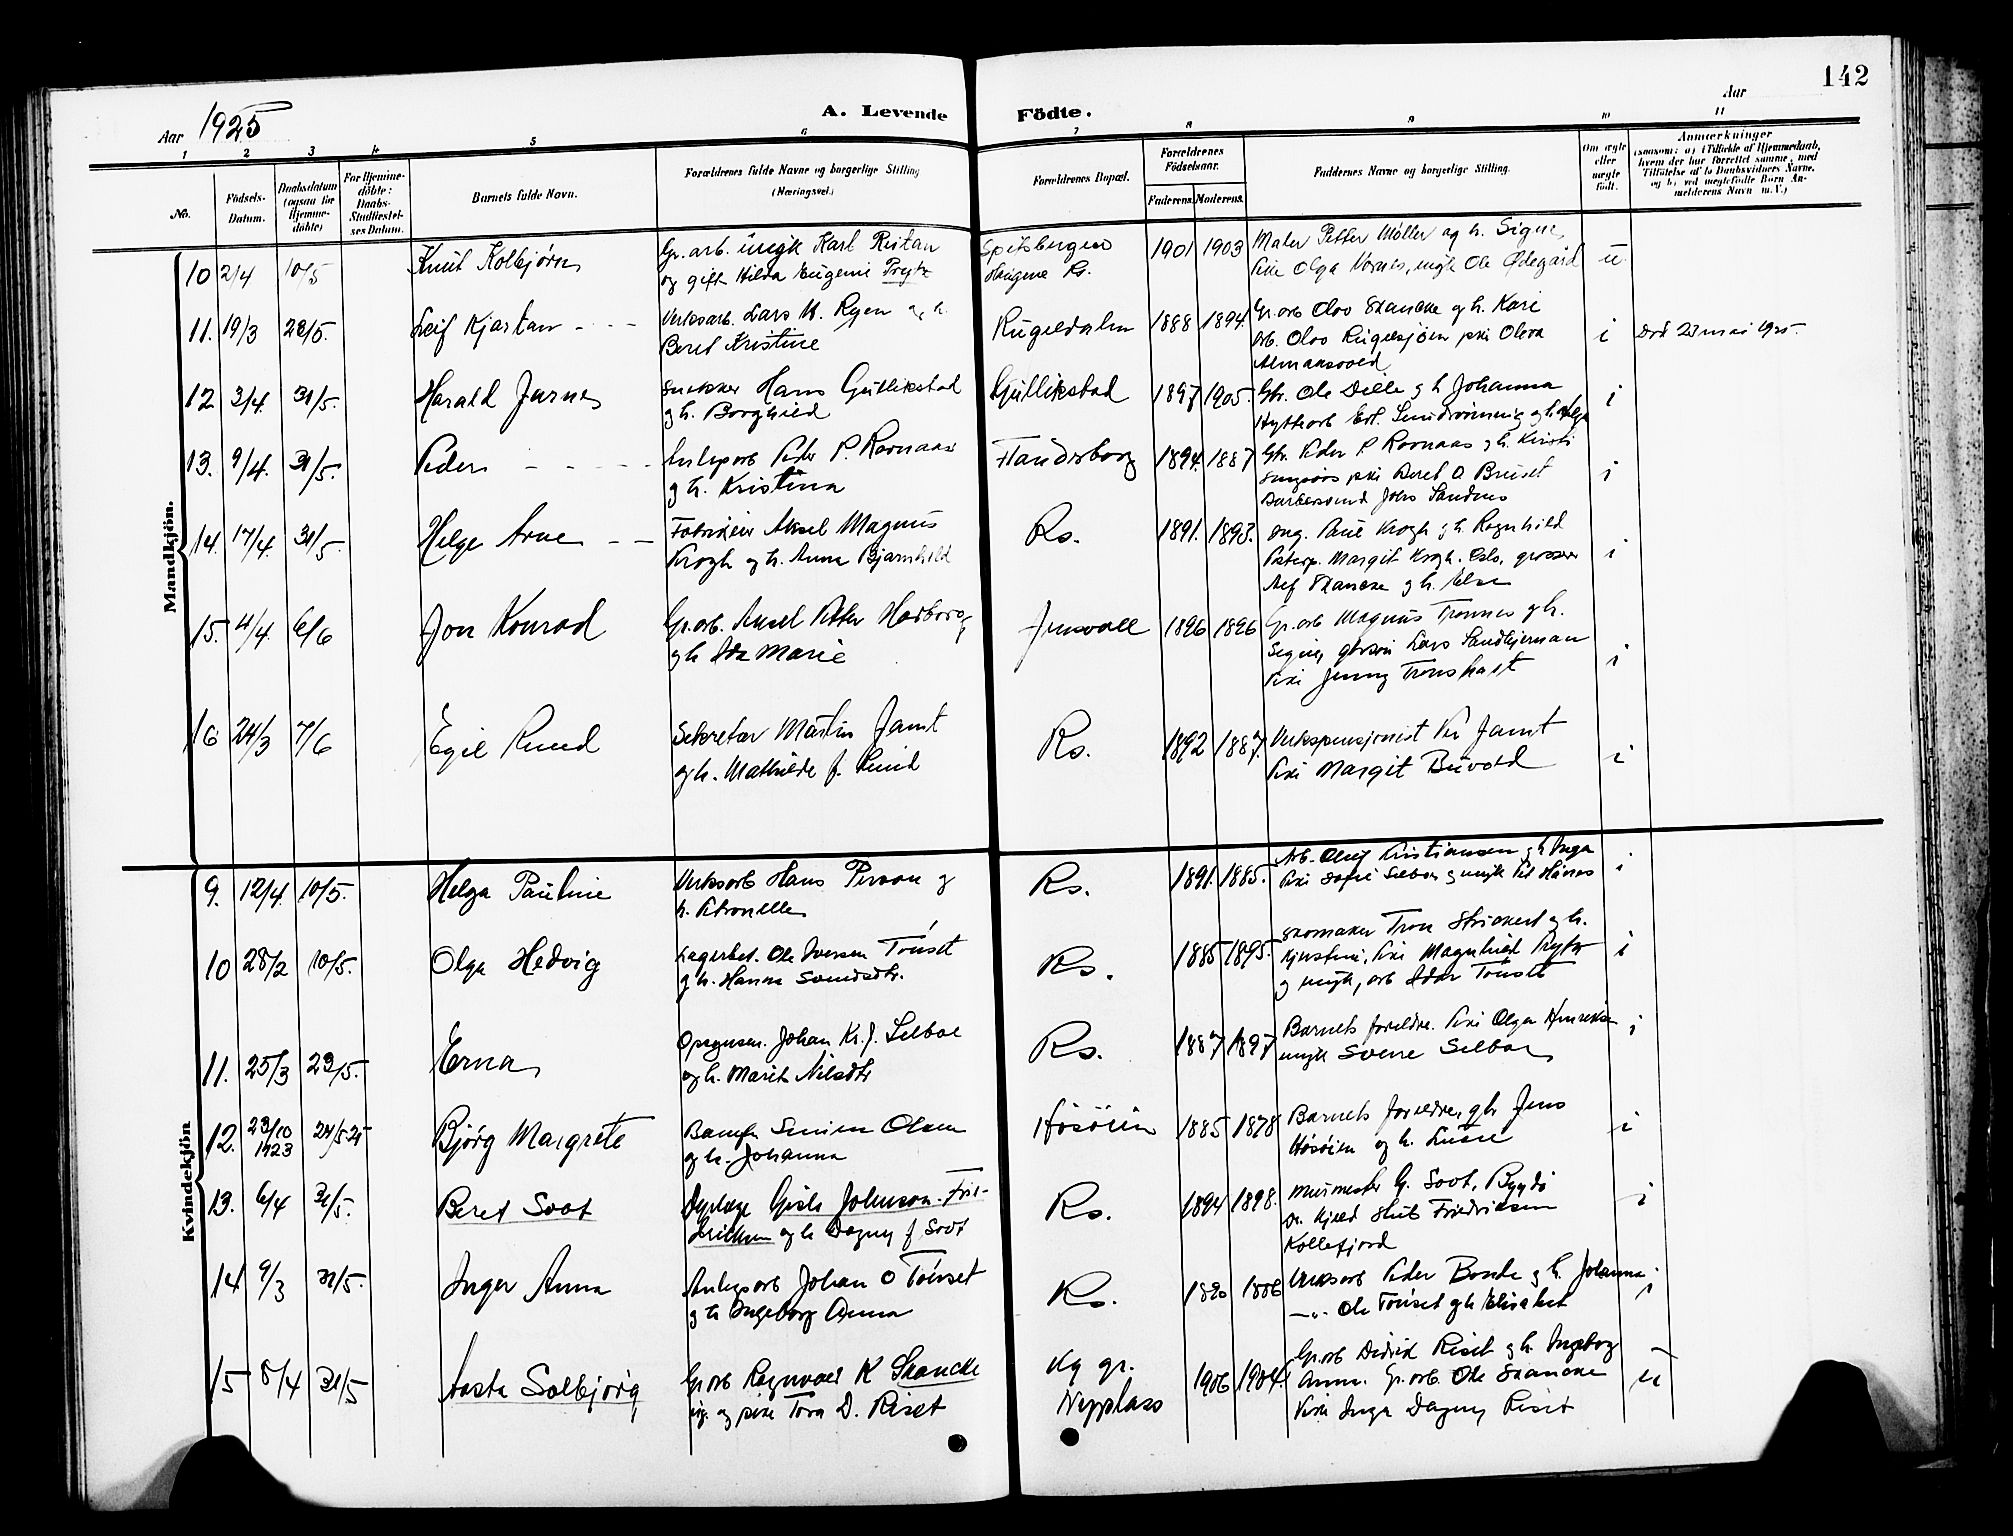 142
Aar 1925
A. Levende Födte.
Aar
1 2 3 4 5 6 7 8 9 10 11
No.
Födsels-Datum.
Daabsdatum (ogsaa for Hjemme-döbte)
For Hjemme-döbte: Daabs-Stadfæstelses Datum.
Barnets fulde Navn.
Forældrenes fulde Navne og borgerlige Stilling (Næringsvei.)
Forældrenes Bopæl.
Forældrenes Födselsaar.
Faderens. Moderens.
Faddernes Navne og borgerlige Stilling.
Om ægte eller uægte född.
Anmærkninger
(saasom: a) i Tilfælde af Hjemmedaab, hvem der har forrettet samme, med Tilföielse af to Daabsvidners Navne, og b) ved uægtefödte Börn Anmelderens Navn m. V.)
Mandkjön.
10 2/4 10/5 Knut Kolbjörn
Gr.arb. ungk Karl Ristan
og gift Hilda Eugenie Prytz
Spitsbergen
Rs.
1901 1903
Maler Petter Møller og h. Signe,
Pike Olga, ungk Ole Ødegård
u
11. 19/3 28/5. Leif Kjartan - - -
Verksarb. Lars M. Ryen og h.
Beret Kristine
Rugeldalen
1888 1894.
Gr.arb Olav Skancke og h. Kari
Arb. Olav Rugelsjøen pike Olava
Almaasvold
i
Død 28 mai 1925.
12 3/4. 31/5. Harald Jarnes
snekker Hans Gullikstad
og h. Borghild
Gullikstad
1897 1905.
Gbr. Ole Dille og h Johanna
i
13. 9/4. 31/5. Peder - - - -
Anlegsarb Peder P. Ravnaas
og h. Kristina
Flanderborg
1894. 1887
Gbr. Peder P Ravnaas og h. Kirsti
pike Beret O Bruset
i
14. 17/4. 31/5. Helge Arne - -
Fabrikeier Aksel Magnus
Krogh og h. Anna Bjarnhild
Rs.
1891. 1893.
Ing. Paul Krogh og h. Ragnhild
Margit Krogh. Oslo, grosserer
Skancke og h. Else
i
15. 4/4. 6/6 Jon Konrad
Gr.arb. Aksel Petter Harborg
og h Ida Marie
Jensvoll
1896 1896
Gr.arb Magnus Trønnes og h.
Signe, Lars Sandkjernan
Pike Jenny Tronshart
i
16 24/3 7/6 Egil Rund
Sekretær Martin Jamt
og h. Mathilde f. Rund
Rs.
1892 1887.
Verkspensjonist Per Jamt
Pike Margit Buvold
i
Kvindekjön
9. 12/4. 10/5. Helga Pauline
Verksarb Hans Person og
h. Petronelle
Rs.
1891. 1885.
Arb. Oluf Kristiansen og h Inga
Pike Sofie Selboe og ungk Per Hånes
i
10 28/2 10/5. Olga Hedvig
Lagerbet. Ole Iversen Tønset
og h. Hanna Svendsdtr.
Rs.
1885 1895.
Skomaker Tron Strickert og h.
Kjerstine, Pike Magnhild Prytz
og ungk, arb Idar Tønset
i
11. 25/3 23/5. Erna
Opsynsm. Johan Kr. J. Selboe
og h. Marit Nilsdtr
Rs.
1887 1897
Barnets foreldre. Pike Olga Henriksen
ungk Sverre Selboe
i
12. 23/10 1923 24/5 25 Bjørg Margrete
Banefm Simen Olsen
og h. Johanna
Høsøien
1885 1878
Barnets foreldre, gbr Jens
Høsøien og h. Lusie
i
13. 6/4 31/5. Beret Soot
Dyrlæge Gisle Johnson-Frid-
riksen og h Dagny f Soot
Rs.
1894 1898.
Murmester G. Soot, Bygdø
Dr. Kjeld Stub Fridriksen
Kollefjord
i
14 9/3 31/5. Inger Anna
Anlegsarb Johan O Tønset
og h Ingeborg Anna
Rs.
1880 1886
Verksarb Peder Borche og h. Johanna.
—"— Ole Tønset og h Elisabet
i
15 8/4 31/5 Aasta Solbjørg
Gr.arb Ragnvald K Skancke
ug. og pike Tora D. Riset
Ny gr.
Nyplass
1906 1904.
Gr.arb Didrik Riset og h. Ingeborg
Anna. Gr.arb. Ole Skancke
Pike Inga Dagny Riset
u